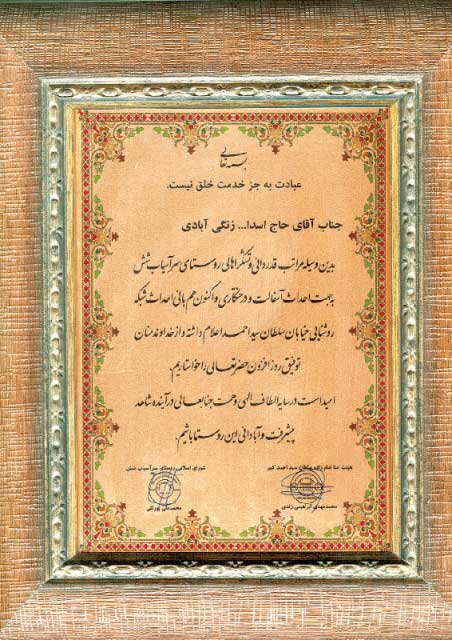 بسمه تعالی
عبادت به جز خدمت خلق نیست.
جناب آقای حاج اسدا... زنگی آبادی
بدین وسیله مراتب قدردانی و تشکر اهالی روستای سرآسیاب شش
به جهت احداث آسفالت و درختکاری و اکنون هم بانی احداث شبکه
روشنایی خیابان سلطان سید احمد اعلام داشته و از خداوند منان
توفیق روز افزون حضرتعالی را خواستاریم.
امید است در سایه الطاف الهی و همت جنابعالی در آینده شاهد
پیشرفت و آبادانی این روستا باشیم.
هیئت امنا امام زاده سلطان سید احمد کبیر
شورای اسلامی روستای سرآسیاب شش
محمدمهدی ابراهیمی زندی
محمدعلی